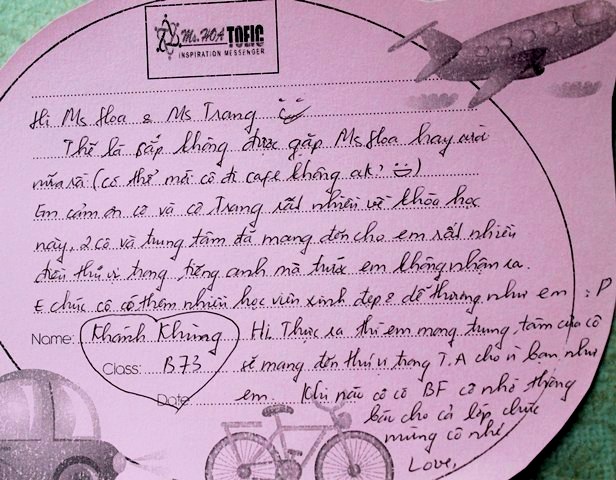 Ms. HOA TOEIC
INSPIRATION MESSENGER
Hi Ms Hoa & Ms Trang
Thế là sắp không được gặp Ms Hoa hay cười
nữa rồi (có thể mời cô đi cafe không ak?
Em cảm ơn cô và cô Trang rất nhiều về khóa học
này, 2 cô và trung tâm đã mang đến cho em rất nhiều
điều thú vị trong tiếng anh mà trước em không nhận ra.
E chúc cô có thêm nhiều học viên xinh đẹp & dễ thương như em :P
Name: Khánh Khùng Hi, Thực ra thì em mong trung tâm của cô
Class: B73 sẽ mang đến thú vị trong T.A cho n bạn như
Date em. Khi nào cô có BF cô nhớ thông
báo cho cả lớp chúc
mừng cô nhé
Love,